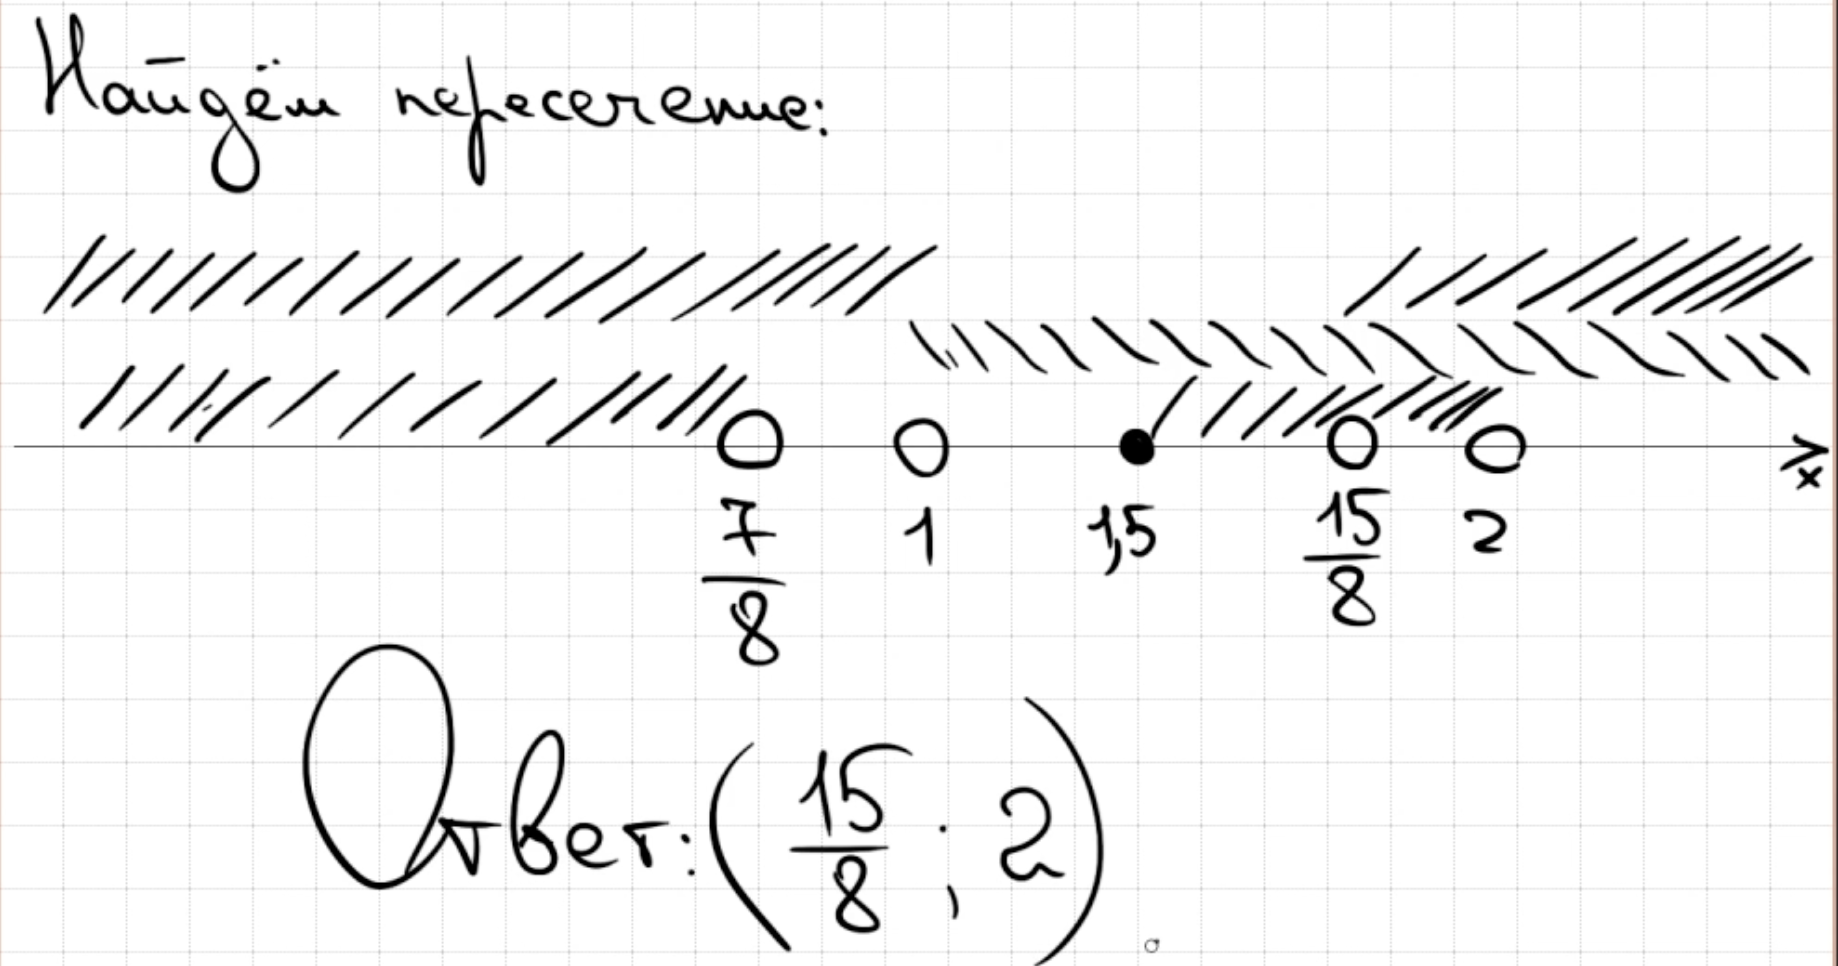 Найдём пересечение:
7/8 1 1,5 15/8 2 x
Ответ: (15/8 ; 2)